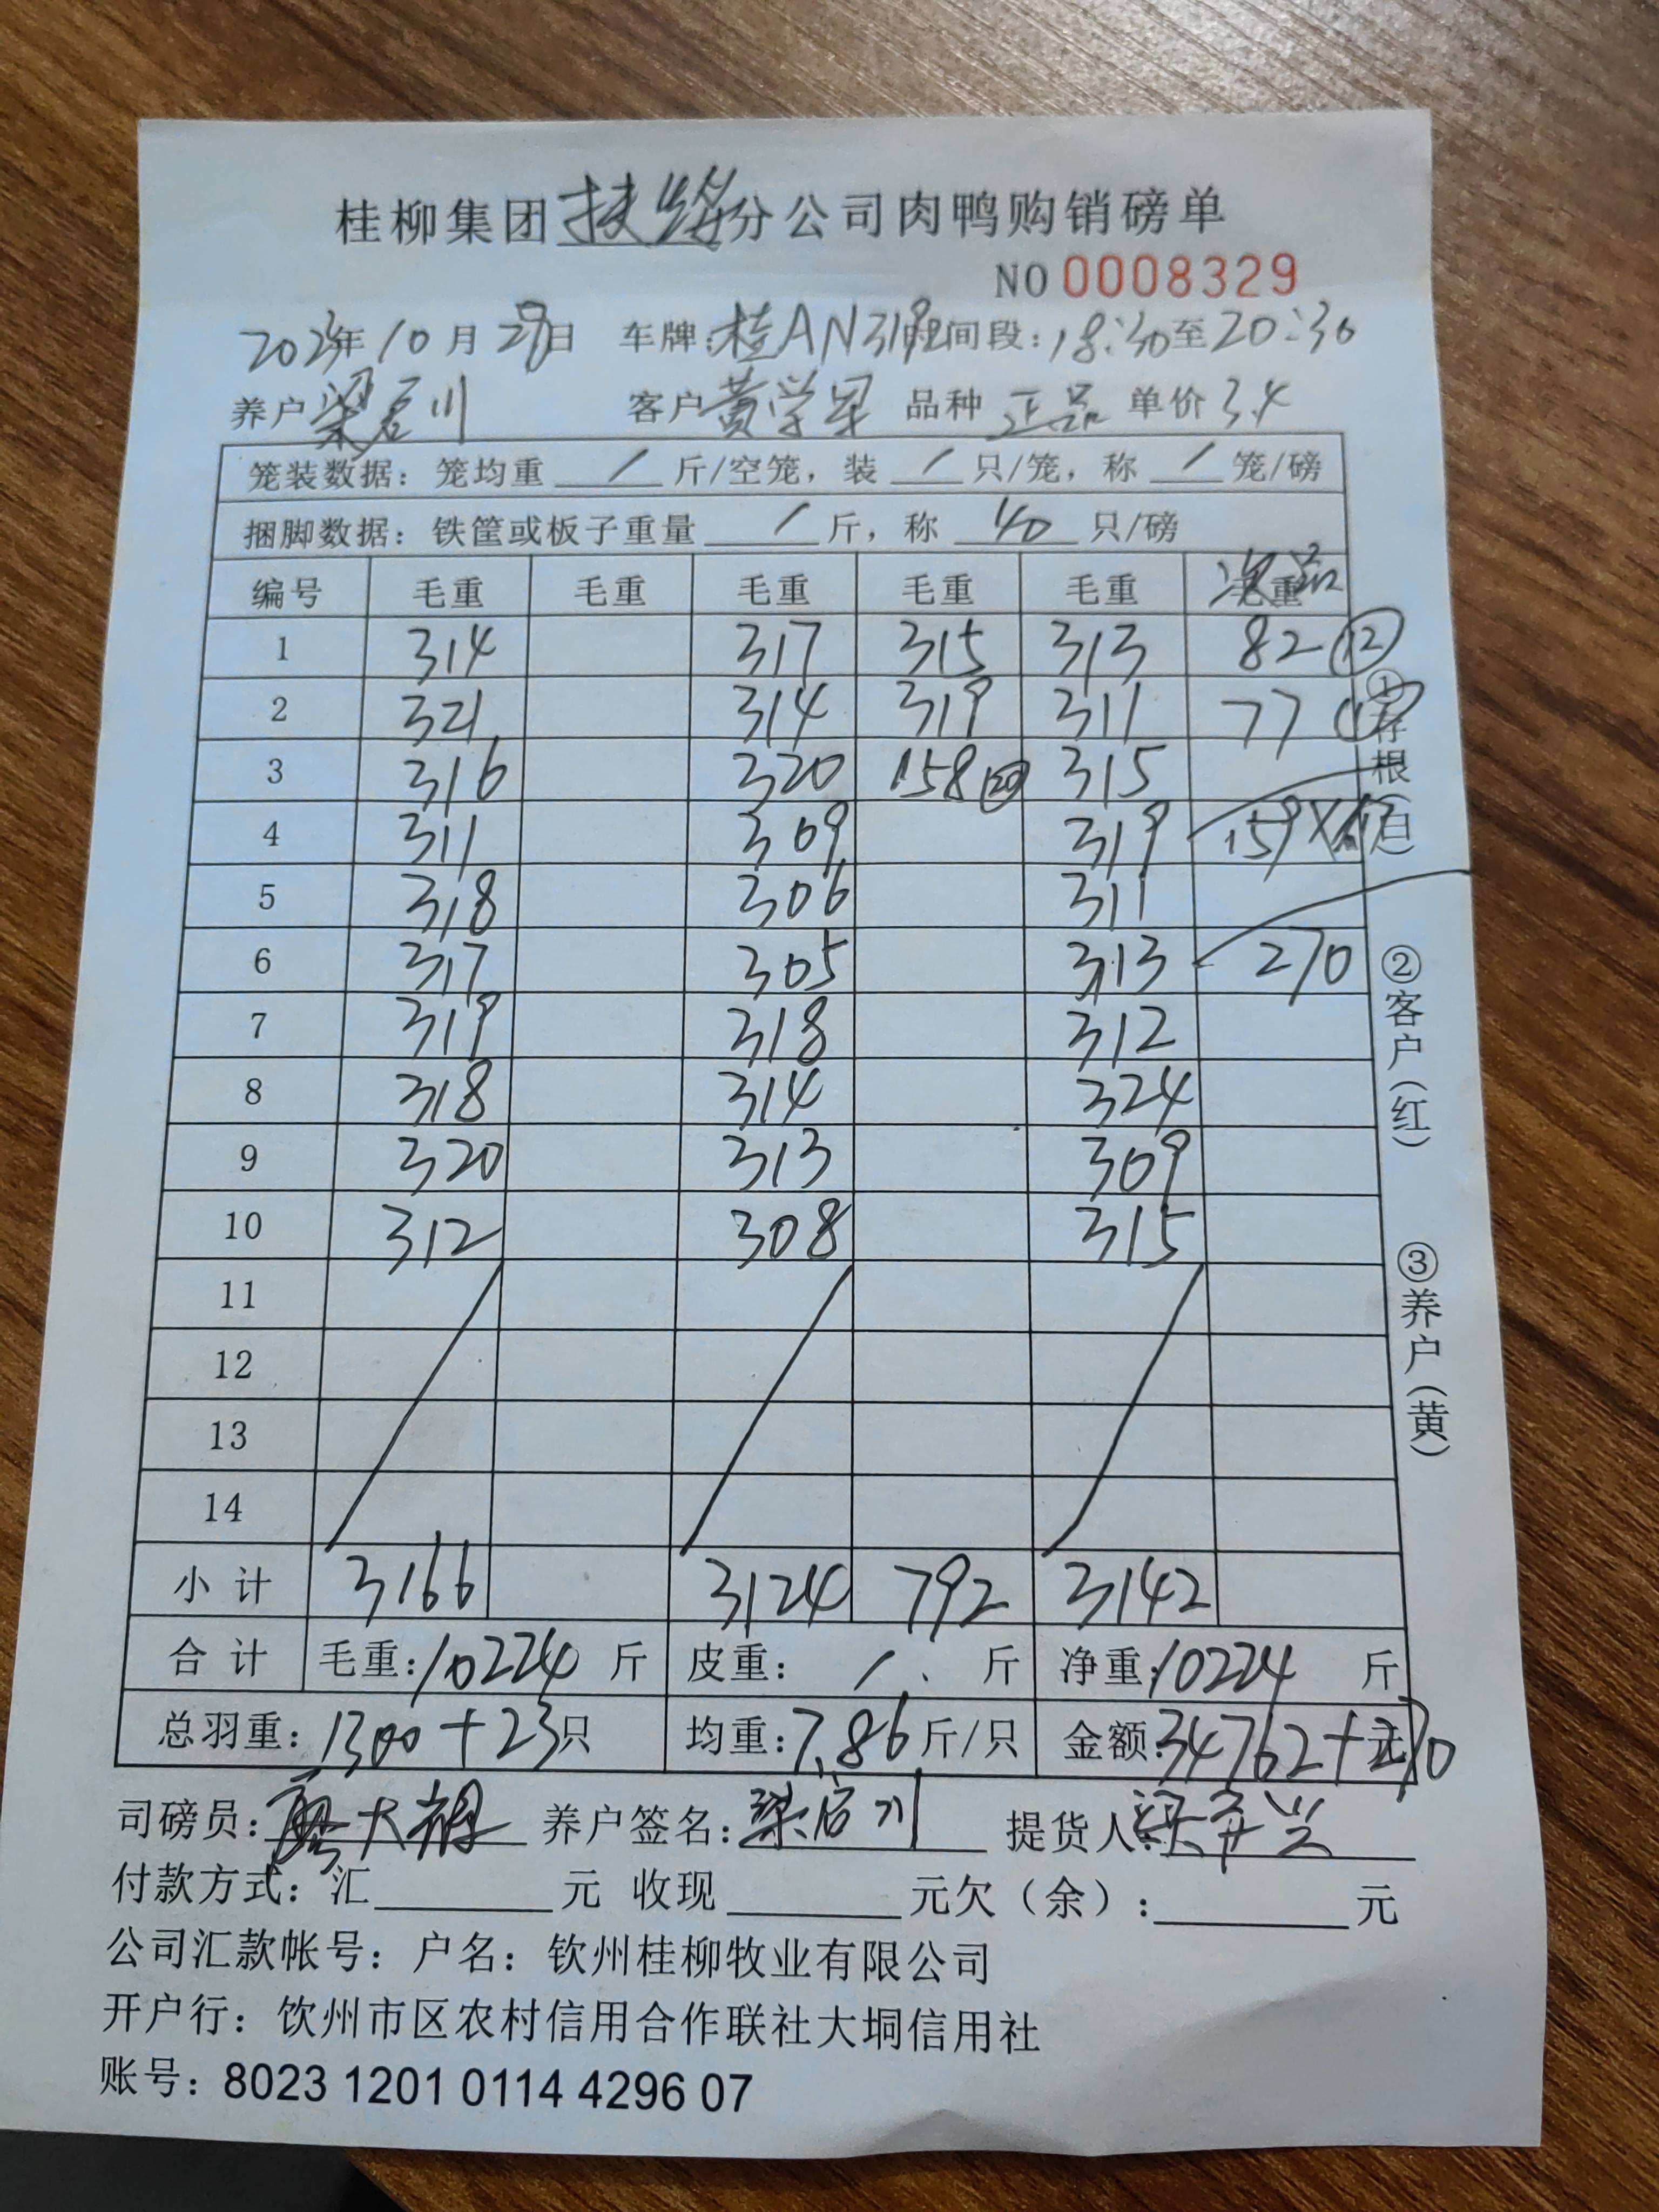 桂柳集团扶绥分公司肉鸭购销磅单
NO 0008329
2023年10月29日 车牌:桂AN319 时间段:18:30至20:30
养户 梁启川 客户 黄学军 品种 正品 单价 3.4
笼装数据: 笼均重 / 斤/空笼, 装 / 只/笼, 称 / 笼/磅
捆脚数据: 铁筐或板子重量 / 斤, 称 40 只/磅
编号 毛重 毛重 毛重 毛重 毛重 毛重 次品
1 314 317 315 313 82 ⑫
2 321 314 319 311 77
3 316 320 158 ⑳ 315
4 311 309 319 159×
5 318 306 311
6 317 305 313 270
7 319 318 312
8 318 314 324
9 320 313 309
10 312 308 315
11
12
13
14
小计 3166 3124 792 3142
合计 毛重:10224 斤 皮重: / 斤 净重:10224 斤
总羽重: 1300+23只 均重:7.86斤/只 金额:34762+270元
司磅员: 养户签名:梁启川 提货人:
付款方式: 汇 元 收现 元欠(余): 元
公司汇款帐号: 户名: 钦州桂柳牧业有限公司
开户行: 钦州市区农村信用合作联社大垌信用社
账号: 8023 1201 0114 4296 07
①存根(白)
②客户(红)
③养户(黄)